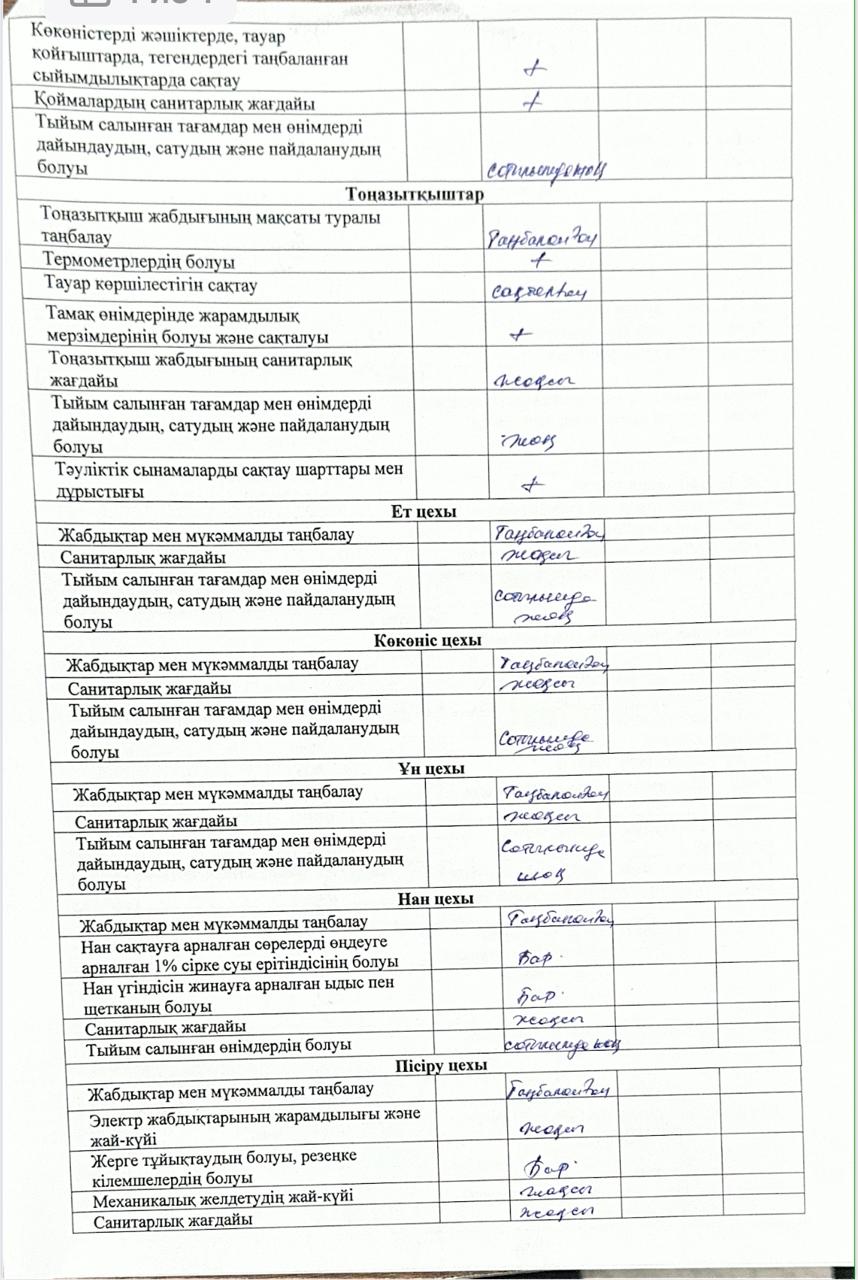 Көкөністерді жәшіктерде, тауар
қойғыштарда, тегендердегі таңбаланған
сыйымдылықтарда сақтау +
Қоймалардың санитарлық жағдайы +
Тыйым салынған тағамдар мен өнімдерді
дайындаудың, сатудың және пайдаланудың
болуы сатылымда жоқ
Тоңазытқыштар
Тоңазытқыш жабдығының мақсаты туралы
таңбалау Таңбаланған
Термометрлердің болуы +
Тауар көршілестігін сақтау сақталған
Тамақ өнімдерінде жарамдылық
мерзімдерінің болуы және сақталуы +
Тоңазытқыш жабдығының санитарлық
жағдайы жақсы
Тыйым салынған тағамдар мен өнімдерді
дайындаудың, сатудың және пайдаланудың
болуы жоқ
Тәуліктік сынамаларды сақтау шарттары мен
дұрыстығы +
Ет цехы
Жабдықтар мен мүкәммалды таңбалау Таңбаланған
Санитарлық жағдайы жақсы
Тыйым салынған тағамдар мен өнімдерді
дайындаудың, сатудың және пайдаланудың сатылымда
болуы жоқ
Көкөніс цехы
Жабдықтар мен мүкәммалды таңбалау Таңбаланған
Санитарлық жағдайы жақсы
Тыйым салынған тағамдар мен өнімдерді
дайындаудың, сатудың және пайдаланудың сатылымда
болуы жоқ
Ұн цехы
Жабдықтар мен мүкәммалды таңбалау Таңбаланған
Санитарлық жағдайы жақсы
Тыйым салынған тағамдар мен өнімдерді сатылымда
дайындаудың, сатудың және пайдаланудың
болуы жоқ
Нан цехы
Жабдықтар мен мүкәммалды таңбалау Таңбаланған
Нан сақтауға арналған сөрелерді өңдеуге
арналған 1% сірке суы ерітіндісінің болуы Бар.
Нан үгіндісін жинауға арналған ыдыс пен
щетканың болуы Бар.
Санитарлық жағдайы жақсы
Тыйым салынған өнімдердің болуы сатылымда жоқ
Пісіру цехы
Жабдықтар мен мүкәммалды таңбалау Таңбаланған
Электр жабдықтарының жарамдылығы және
жай-күйі жақсы
Жерге тұйықтаудың болуы, резеңке
кілемшелердің болуы Бар.
Механикалық желдетудің жай-күйі жақсы
Санитарлық жағдайы жақсы